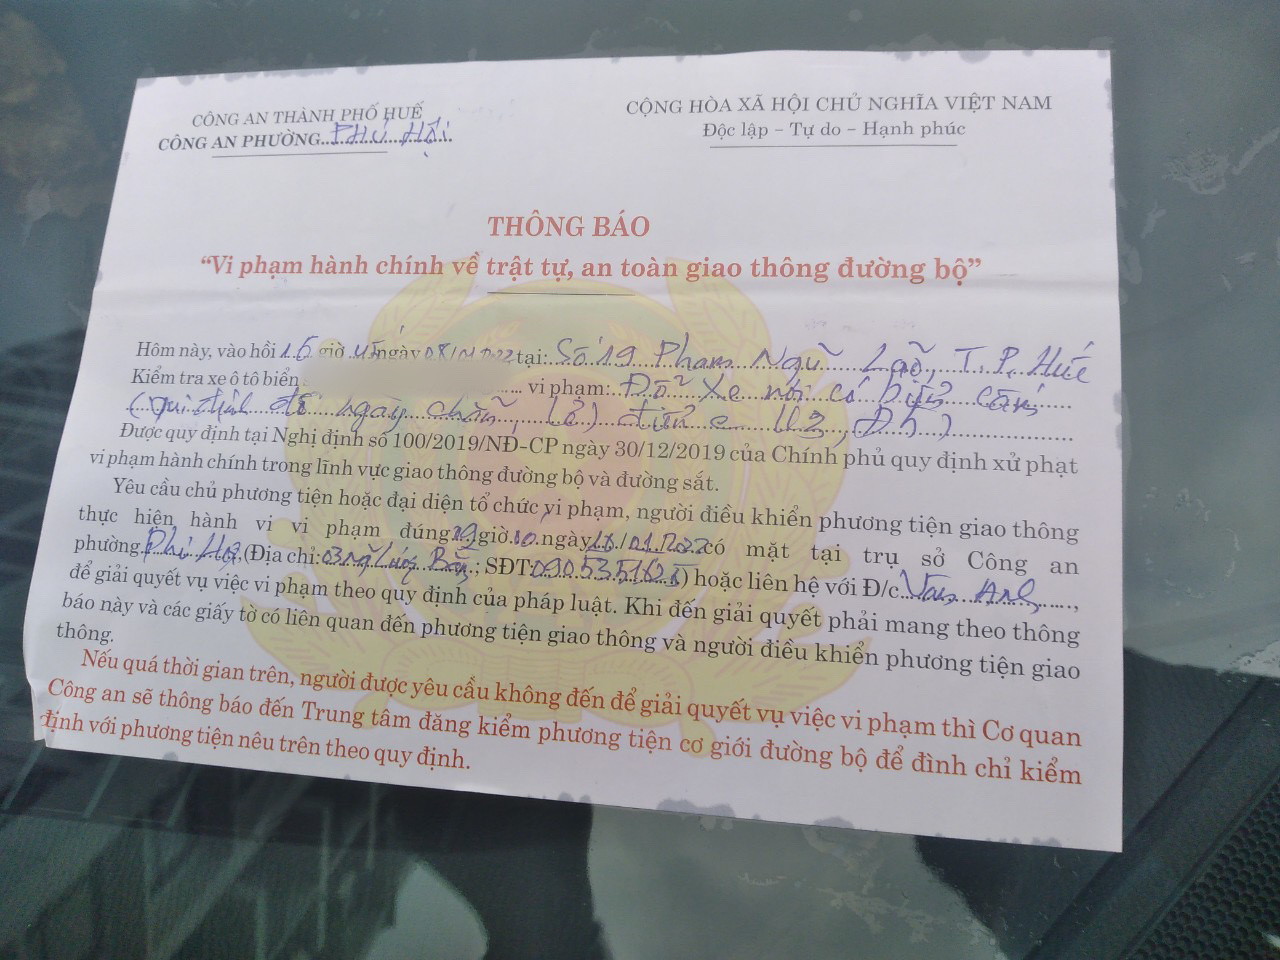 CÔNG AN THÀNH PHỐ HUẾ
CÔNG AN PHƯỜNG PHÚ HỘI
CỘNG HÒA XÃ HỘI CHỦ NGHĨA VIỆT NAM
Độc lập – Tự do – Hạnh phúc
THÔNG BÁO
“Vi phạm hành chính về trật tự, an toàn giao thông đường bộ”
Hôm này, vào hồi giờ ngày tại: Số 19 Phạm Ngũ Lão, T.P. Huế
Kiểm tra xe ô tô biển vi phạm: Đỗ xe nơi có biển cấm
(Qui định đỗ ngày chẵn, lẻ) điểm e
Được quy định tại Nghị định số 100/2019/NĐ-CP ngày 30/12/2019 của Chính phủ quy định xử phạt
vi phạm hành chính trong lĩnh vực giao thông đường bộ và đường sắt.
Yêu cầu chủ phương tiện hoặc đại diện tổ chức vi phạm, người điều khiển phương tiện giao thông
thực hiện hành vi vi phạm đúng giờ ngày có mặt tại trụ sở Công an
phường Phú Hội, (Địa chỉ: 03 SĐT: ) hoặc liên hệ với Đ/c Vân Anh,
để giải quyết vụ việc vi phạm theo quy định của pháp luật. Khi đến giải quyết phải mang theo thông
báo này và các giấy tờ có liên quan đến phương tiện giao thông và người điều khiển phương tiện giao
thông.
Nếu quá thời gian trên, người được yêu cầu không đến để giải quyết vụ việc vi phạm thì Cơ quan
Công an sẽ thông báo đến Trung tâm đăng kiểm phương tiện cơ giới đường bộ để đình chỉ kiểm
định với phương tiện nêu trên theo quy định.